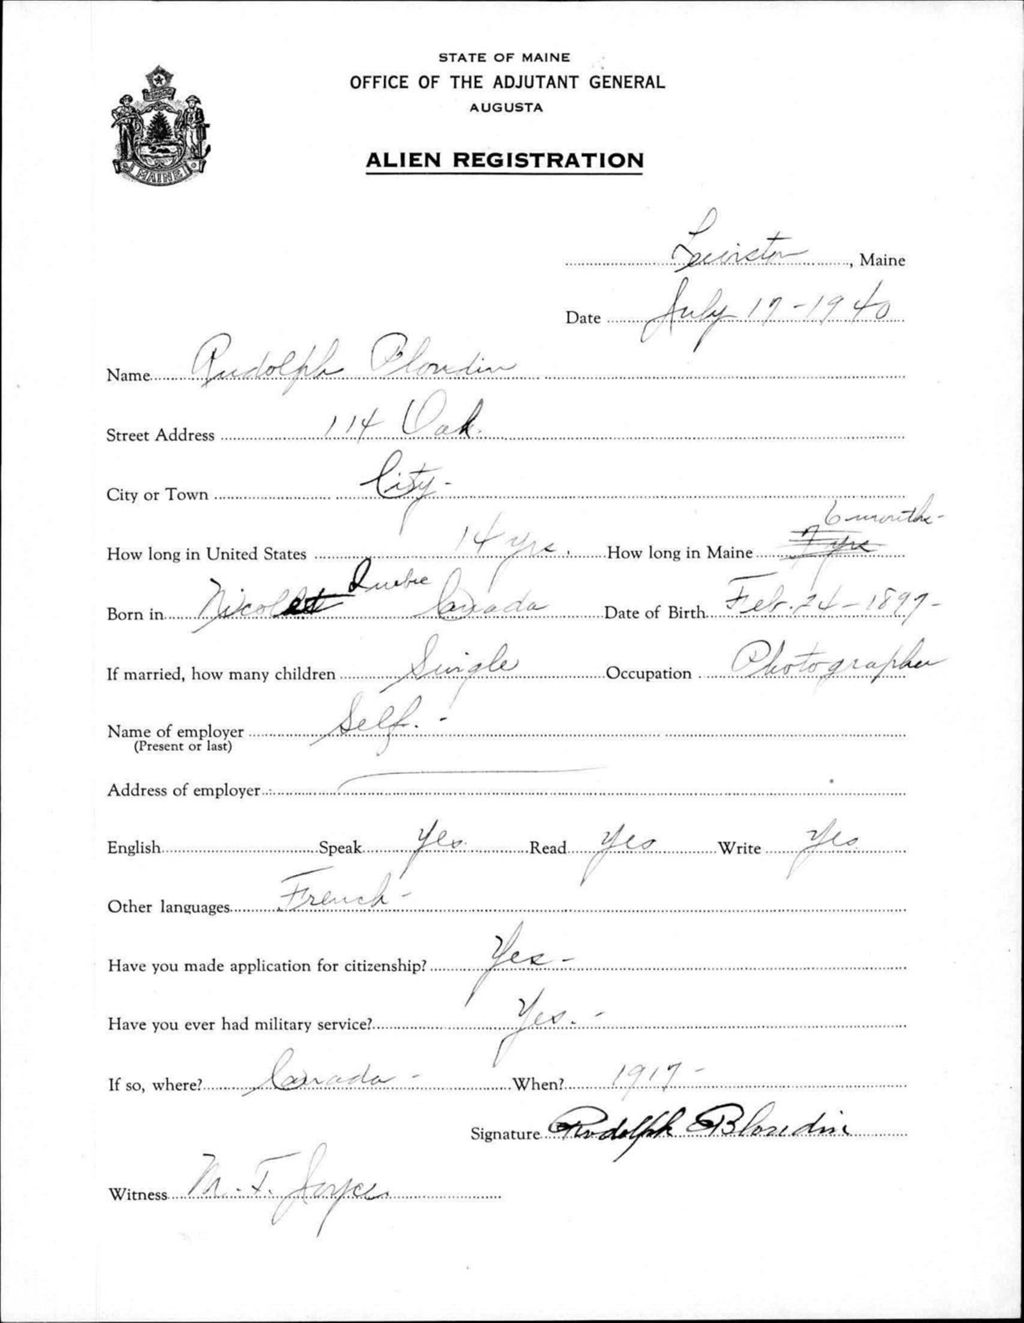 STATE OF MAINE
OFFICE OF THE ADJUTANT GENERAL
AUGUSTA
ALIEN REGISTRATION
MAINE
Lewiston, Maine
Date July 17-1940
Name Rudolph Blondin
Street Address 114 Oak.
City or Town City-
6 months-
How long in United States 14 yrs. How long in Maine 7 yrs
Quebec
Born in Nicolet Canada Date of Birth Feb. 24-1897-
If married, how many children Single Occupation Photographer
Name of employer Self. -
(Present or last)
Address of employer
English Speak Yes. Read Yes Write Yes.
Other languages French-
Have you made application for citizenship? Yes-
Have you ever had military service? Yes. -
If so, where? Canada - When? 1917-
Signature Rudolph Blondin
Witness M. T. Joyce